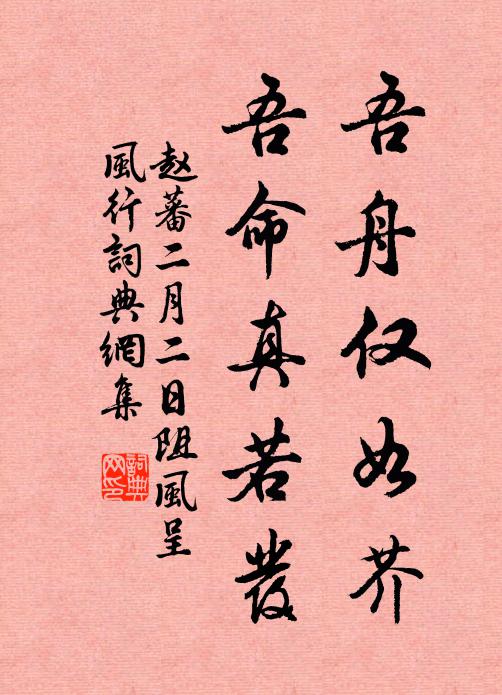 吾舟仅如芥
吾命真若發
赵蕃二月二日阻風呈
風行詞典網集
詞典網印